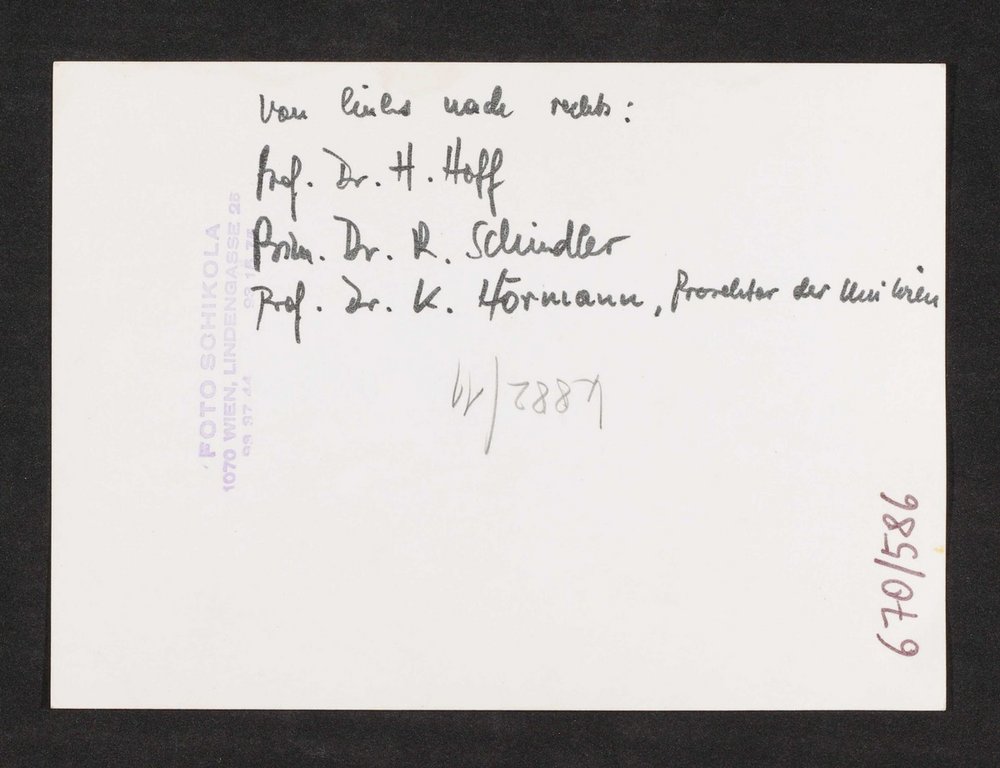 von links nach rechts:
Prof. Dr. H. Hoff
Prim. Dr. R. Schindler
Prof. Dr. K. Hörmann, Prorektor der Uni Wien
FOTO SCHIKOLA
1070 WIEN, LINDENGASSE 26
670/586